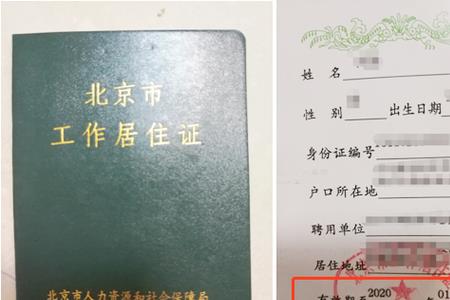 北京市
工作居住证
北京市人力资源和社会保障局
姓 名
性 别 出生日期
身份证编号
户口所在地
聘用单位
居住地址
有效期至 2020 01